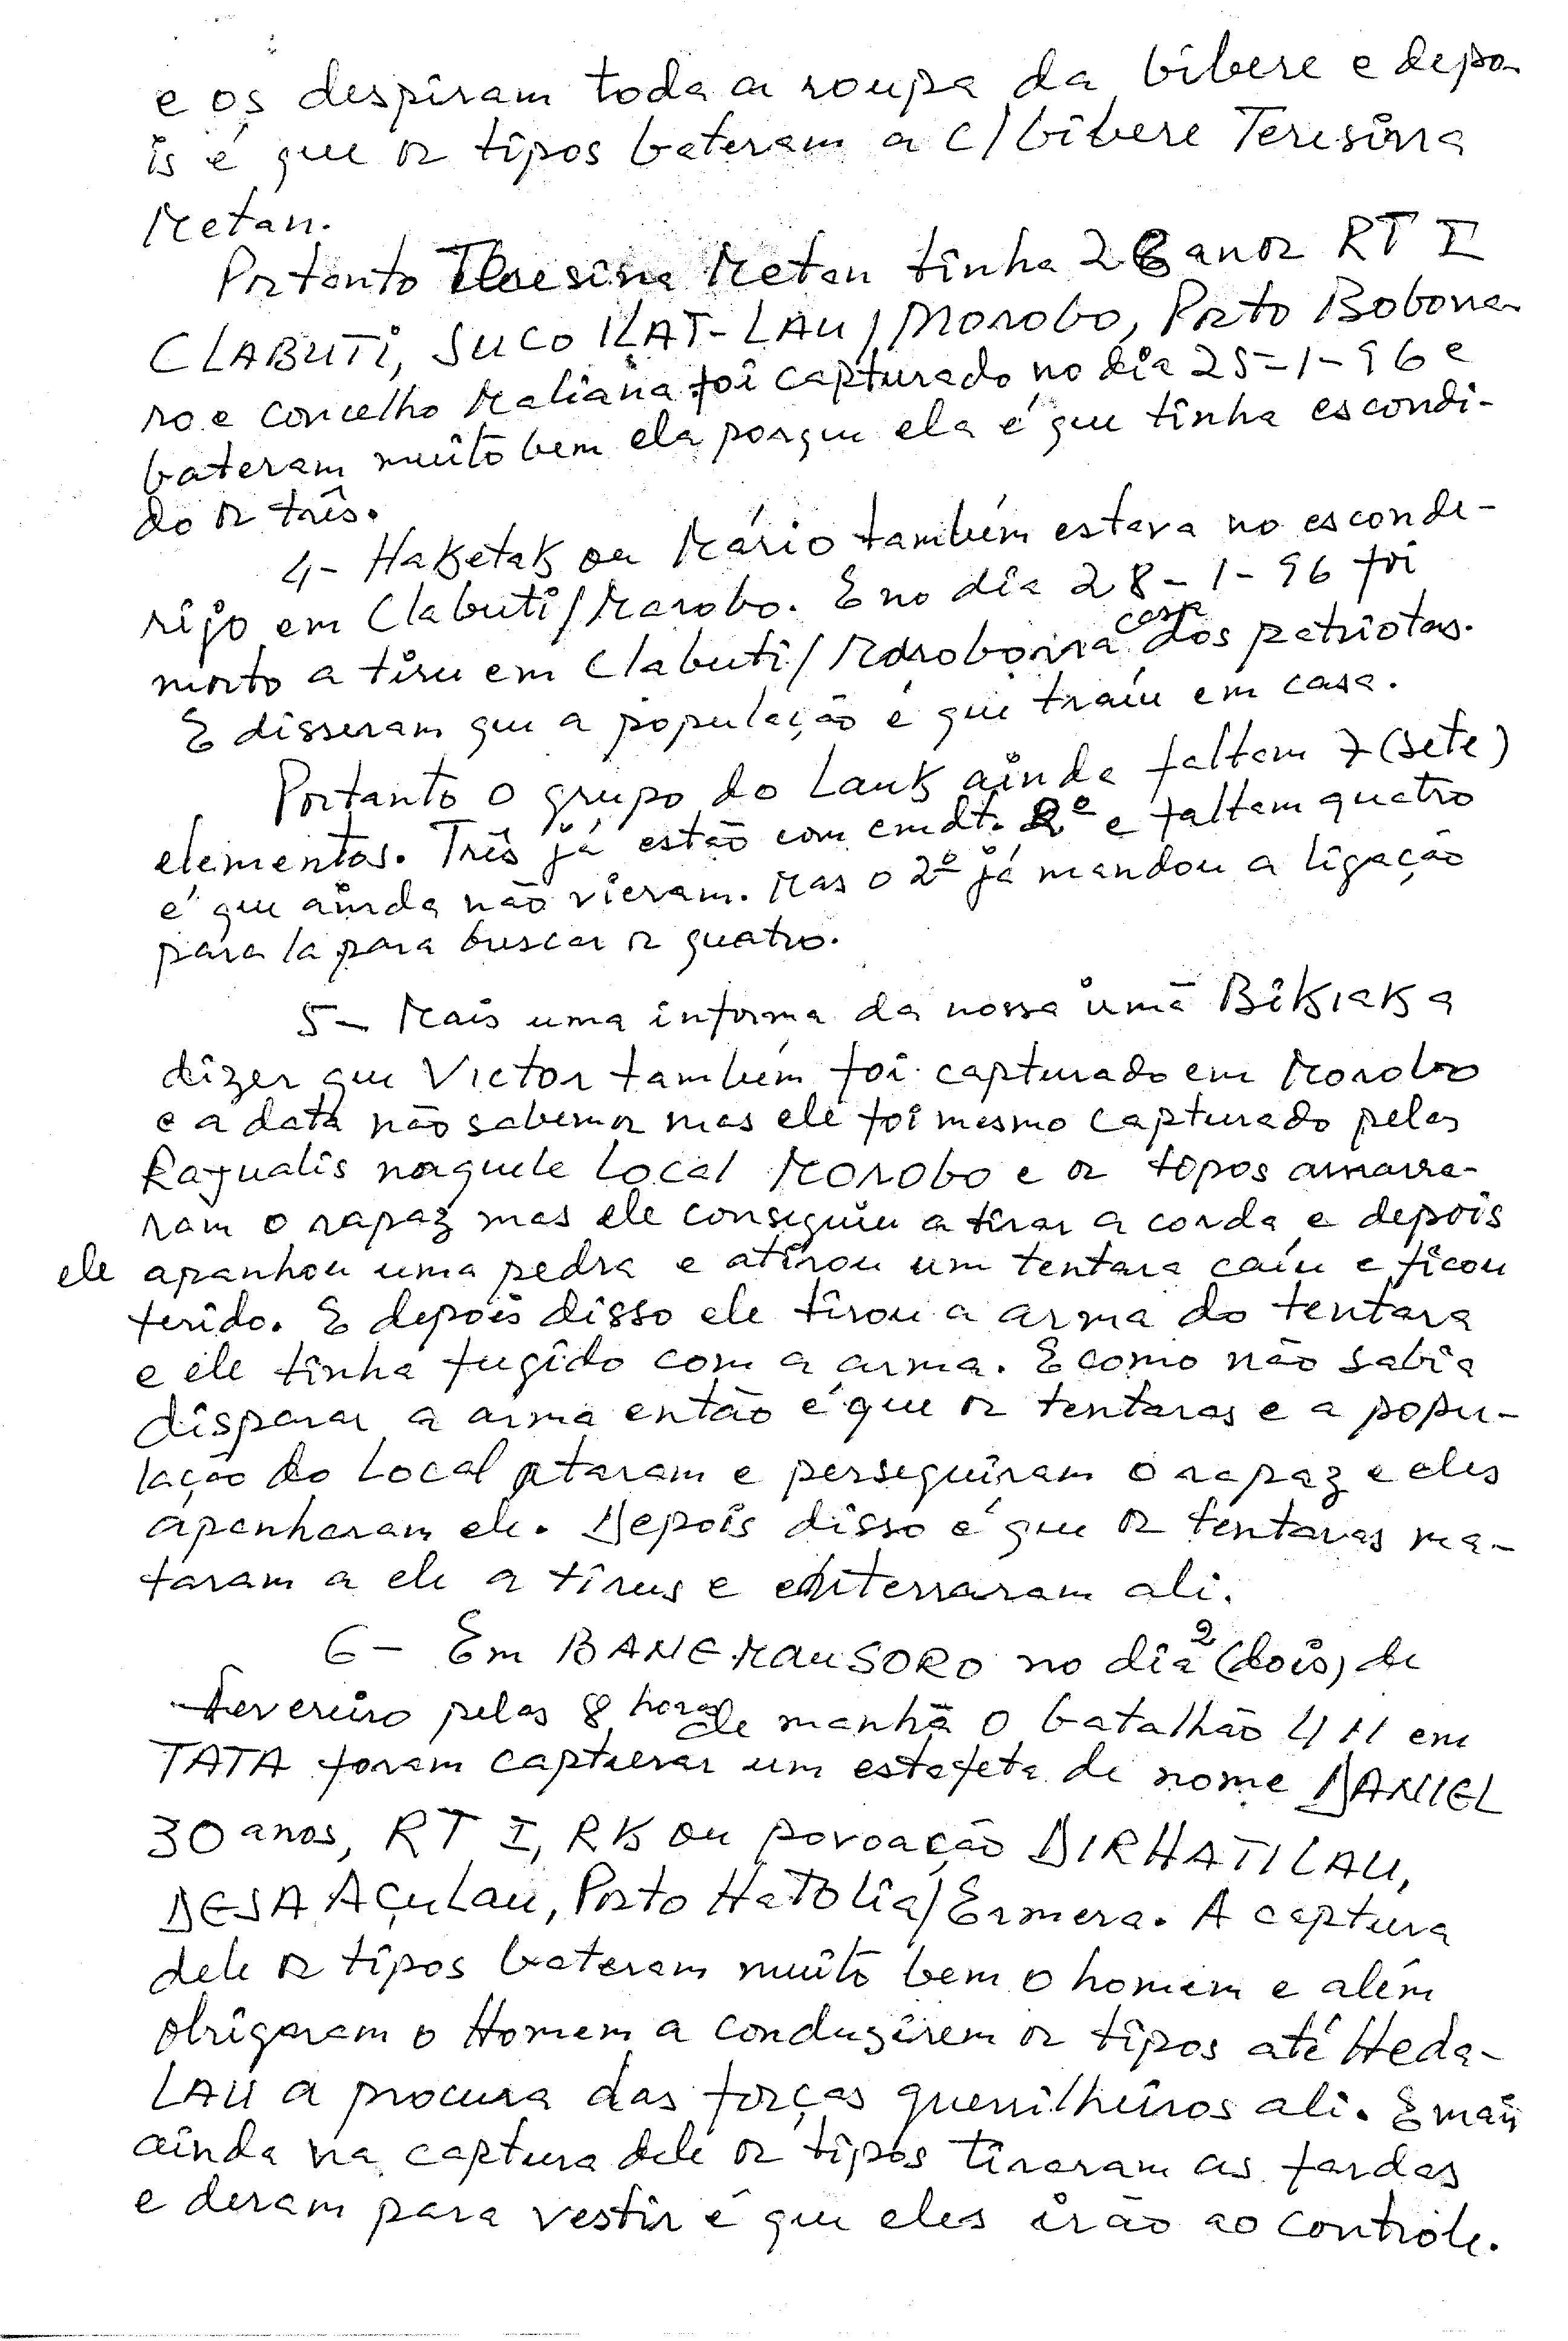 e os despiram toda a roupa da bibere e depo-
is é que os tipos bateram a c/bibere Teresina
Metan.
Portanto Teresina Metan tinha 26 anos RT I
CLABUTI, SUCO ILAT-LAU/MOROBO, Posto Bobona-
ro e concelho Maliana foi capturado no dia 25-1-96 e
bateram muito bem ela porque ela é que tinha escondi-
do os três.
4- Haksetak ou Mário também estava no esconde-
rijo em Clabuti/Marobo. E no dia 28-1-96 foi
morto a tiru em Clabuti/Marobo casa dos patriotas.
E disseram que a população é que traíu em casa.
Portanto o grupo do Lauk ainda faltam 7 (sete)
elementos. Três já estão com cmdt. 2º e faltam quatro
é que ainda não vieram. Mas o 2º já mandou a ligação
para la para buscar os quatro.
5- Mais uma informa da nossa irmã Bikiak a
dizer que Victor também foi capturado em Morobo
e a data não sabemos mas ele foi mesmo capturado pelas
Ratualis naquele local Morobo e os tipos amarra-
ram o rapaz mas ele conseguiu a tirar a corda e depois
ele apanhou uma pedra e atirou um tentara caíu e ficou
ferido. E depois disso ele tirou a arma do tentara
e ele tinha fugido com a arma. E como não sabia
disparar a arma então é que os tentaras e a popu-
lação do local ataram e perseguiram o rapaz e eles
apanharam ele. Depois disso é que os tentaras ma-
taram a ele a tirus e enterraram ali.
6- Em BANEMAUSORO no dia 2 (dois) de
fevereiro pelas 8 horas de manhã o batalhão 411 em
TATA foram capturar um estafeta de nome DANIEL
30 anos, RT I, RK ou povoação DIRHATILAU,
DESA AÇULAU, Posto Hatolia/Ermera. A captura
dele os tipos bateram muito bem o homem e além
obrigaram o Homem a conduzirem os tipos até Heda-
LAU a procura das forças guerrilheiros ali. E mais
ainda na captura dele os tipos tiraram as fardas
e deram para vestir é que eles irão ao controle.